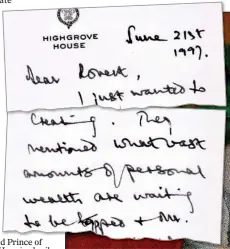 HIGHGROVE
HOUSE
June 21st
1997.
Dear Robert,
I just wanted to
creating. They
mentioned what vast
amounts of personal
wealth are waiting
to be tapped & Mr.
d Prince of